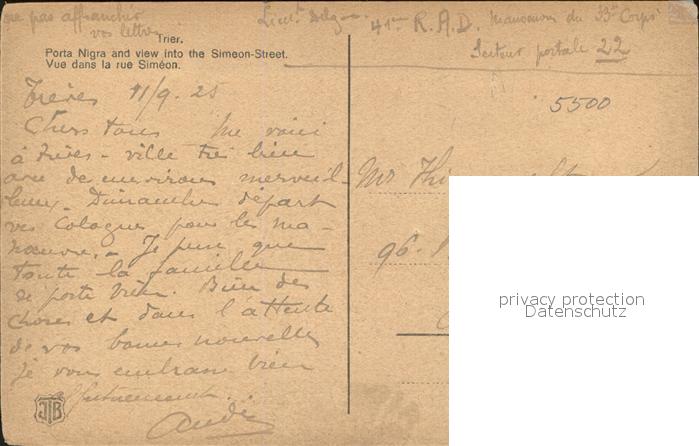 ne pas affranchir
vos lettres
Lieut.
41me R.A.D. Manoeuvres du 33e Corps
Secteur postale 22
Trier.
Porta Nigra and view into the Simeon-Street.
Vue dans la rue Siméon.
5500
Trèves 11/9. 25
Chers tous Me voici
à Trèves - ville très bien
avec de environs merveil-
leux. Dimanche départ
vers Cologne pour les ma-
noeuvre. - Je pense que
toute la famille
se porte bien. Bien des
choses et dans l'attente
de vos bonnes nouvelles
je vous embrasse bien
affectueusement.
André
Mr
96.
JTB
privacy protection
Datenschutz